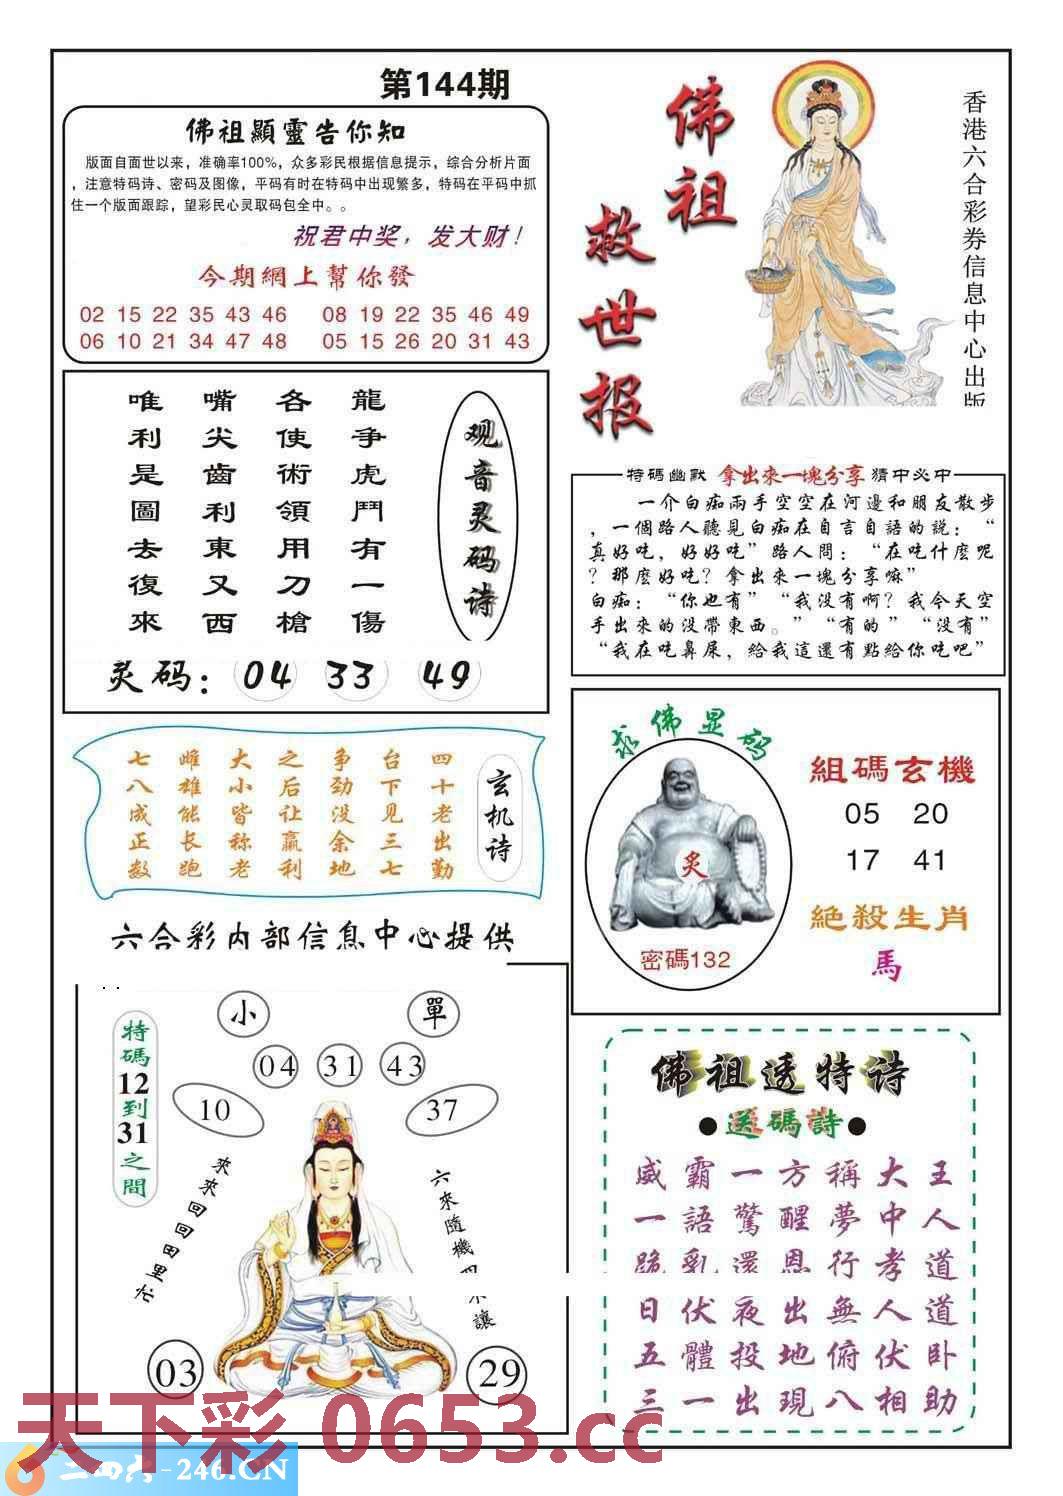 第144期
佛祖顯靈告你知
版面自面世以来，准确率100%，众多彩民根据信息提示，综合分析片面
，注意特码诗、密码及图像，平码有时在特码中出现繁多，特码在平码中抓
住一个版面跟踪，望彩民心灵取码包全中。。
祝君中奖，发大财！
今期網上幫你發
02 15 22 35 43 46 08 19 22 35 46 49
06 10 21 34 47 48 05 15 26 20 31 43
佛祖
救世报
香港六合彩券信息中心出版
观音灵码诗
龍争虎鬥有一傷
各使術領用刀槍
嘴尖齒利東又西
唯利是圖去復來
灵码：04 33 49
特碼幽默 拿出來一塊分享 猜中必中
一个白痴兩手空空在河邊和朋友散步
，一個路人聽見白痴在自言自語的説：“
真好吃，好好吃”路人問：“在吃什麽呢
？那麽好吃？拿出來一塊分享嘛”
白痴：“你也有”“我没有啊？我今天空
手出來的没帶東西。”“有的”“没有”
“我在吃鼻屎，給我這還有點給你吃吧”
玄机诗
四十老出勤
台下见三七
争劲没余地
之后让赢利
大小皆称老
雌雄能长跑
七八成正数
求佛显码
炙
密碼132
組碼玄機
05 20
17 41
絶殺生肖
馬
六合彩内部信息中心提供
特碼12到31之間
小 單
04 31 43
10 37
來來回回田里忙
六來隨機
讓
03 29
佛祖透特诗
●送碼詩●
威霸一方稱大王
一語驚醒夢中人
跪乳還恩行孝道
日伏夜出無人道
五體投地俯伏卧
三一出現八相助
天下彩 0653.cc
二四六-246.CN